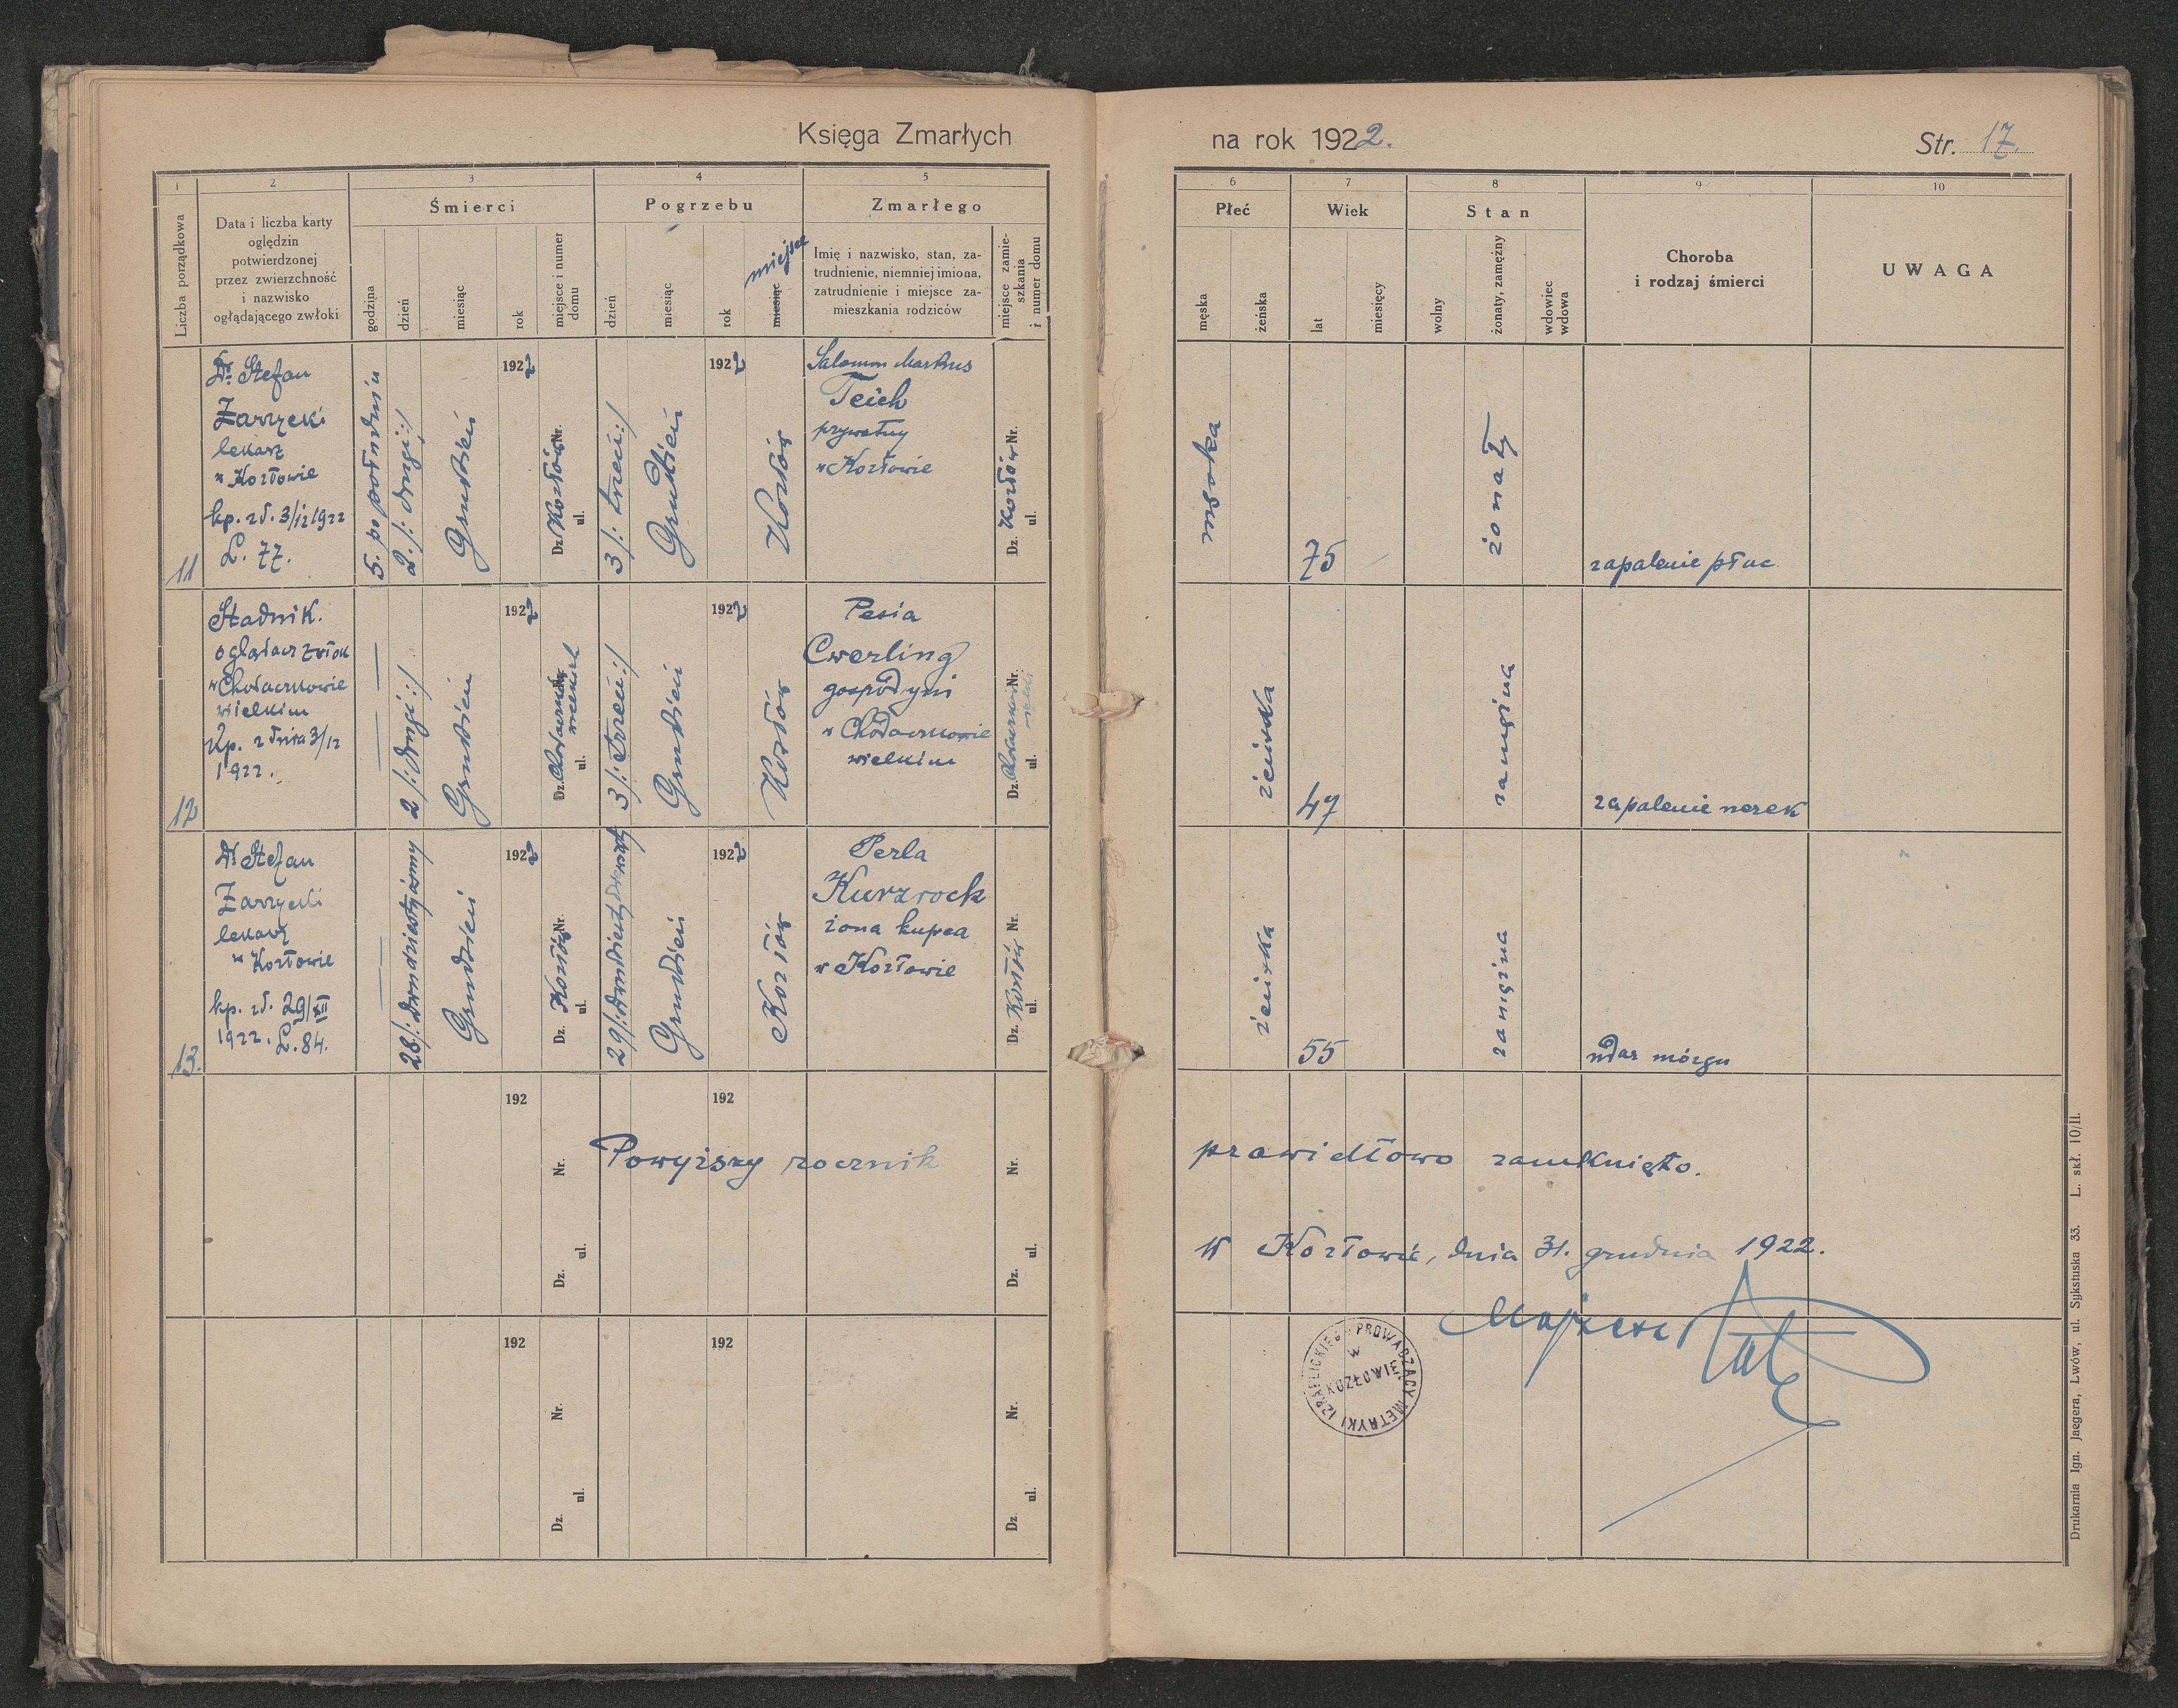 Księga Zmarłych
na rok 1922.
Str. 17.
1
2
3
4
5
6
7
8
9
10
Liczba porządkowa
Data i liczba karty
oględzin
potwierdzonej
przez zwierzchność
i nazwisko
oglądającego zwłoki
Śmierci
godzina
dzień
miesiąc
rok
miejsce i numer
domu
Pogrzebu
dzień
miesiąc
rok
miesiąc
miejsce
Zmarłego
Imię i nazwisko, stan, za-
trudnienie, niemniej imiona,
zatrudnienie i miejsce za-
mieszkania rodziców
miejsce zamie-
szkania
i numer domu
Płeć
męska
żeńska
Wiek
lat
miesięcy
Stan
wolny
żonaty, zamężny
wdowiec
wdowa
Choroba
i rodzaj śmierci
UWAGA
11
Dr. Stefan
Zarzycki
lekarz
w Kozłowie
kp. z d. 3/12 1922
L. 77.
5. po południu
2 /: drugi :/
Grudzień
1922
Dz. Kozłów Nr.
ul.
3 /: trzeci :/
Grudzień
1922
Kozłów
Salomon Markus
Teich
prywatny
w Kozłowie
Dz. Kozłów Nr.
ul.
męska
75
żonaty
zapalenie płuc
12
Stadnik.
oglądacz zwłok
w Chodaczkowie
wielkim
Kp. z dnia 3/12
1922.
2 /: drugi :/
Grudzień
1922
Dz. Nr.
ul.
3 /: trzeci :/
Grudzień
1922
Kozłów
Pesia
Cwerling
gospodyni
w Chodaczkowie
wielkim
Dz. Nr.
ul.
żeńska
47
zamężna
zapalenie nerek
13.
Dr Stefan
Zarzycki
lekarz
w Kozłowie
kp. z d. 29/XII
1922. L. 84.
28 /: dwudziesty ósmy
Grudzień
1922
Dz. Kozłów Nr.
ul.
29 /: dwudziesty dziewiąty
Grudzień
1922
Kozłów
Perla
Kurzrock
żona kupca
w Kozłowie
Dz. Kozłów Nr.
ul.
żeńska
55
zamężna
udar mózgu
192
Dz. Nr.
ul.
192
Dz. Nr.
ul.
Powyższy rocznik prawidłowo zamknięto.
W Kozłowie, dnia 31. grudnia 1922.
192
Dz. Nr.
ul.
192
Dz. Nr.
ul.
PROWADZĄCY METRYKI IZRAELICKIE
W
KOZŁOWIE
Drukarnia Ign. Jaegera, Lwów, ul. Sykstuska 33. L. skł. 10/II.